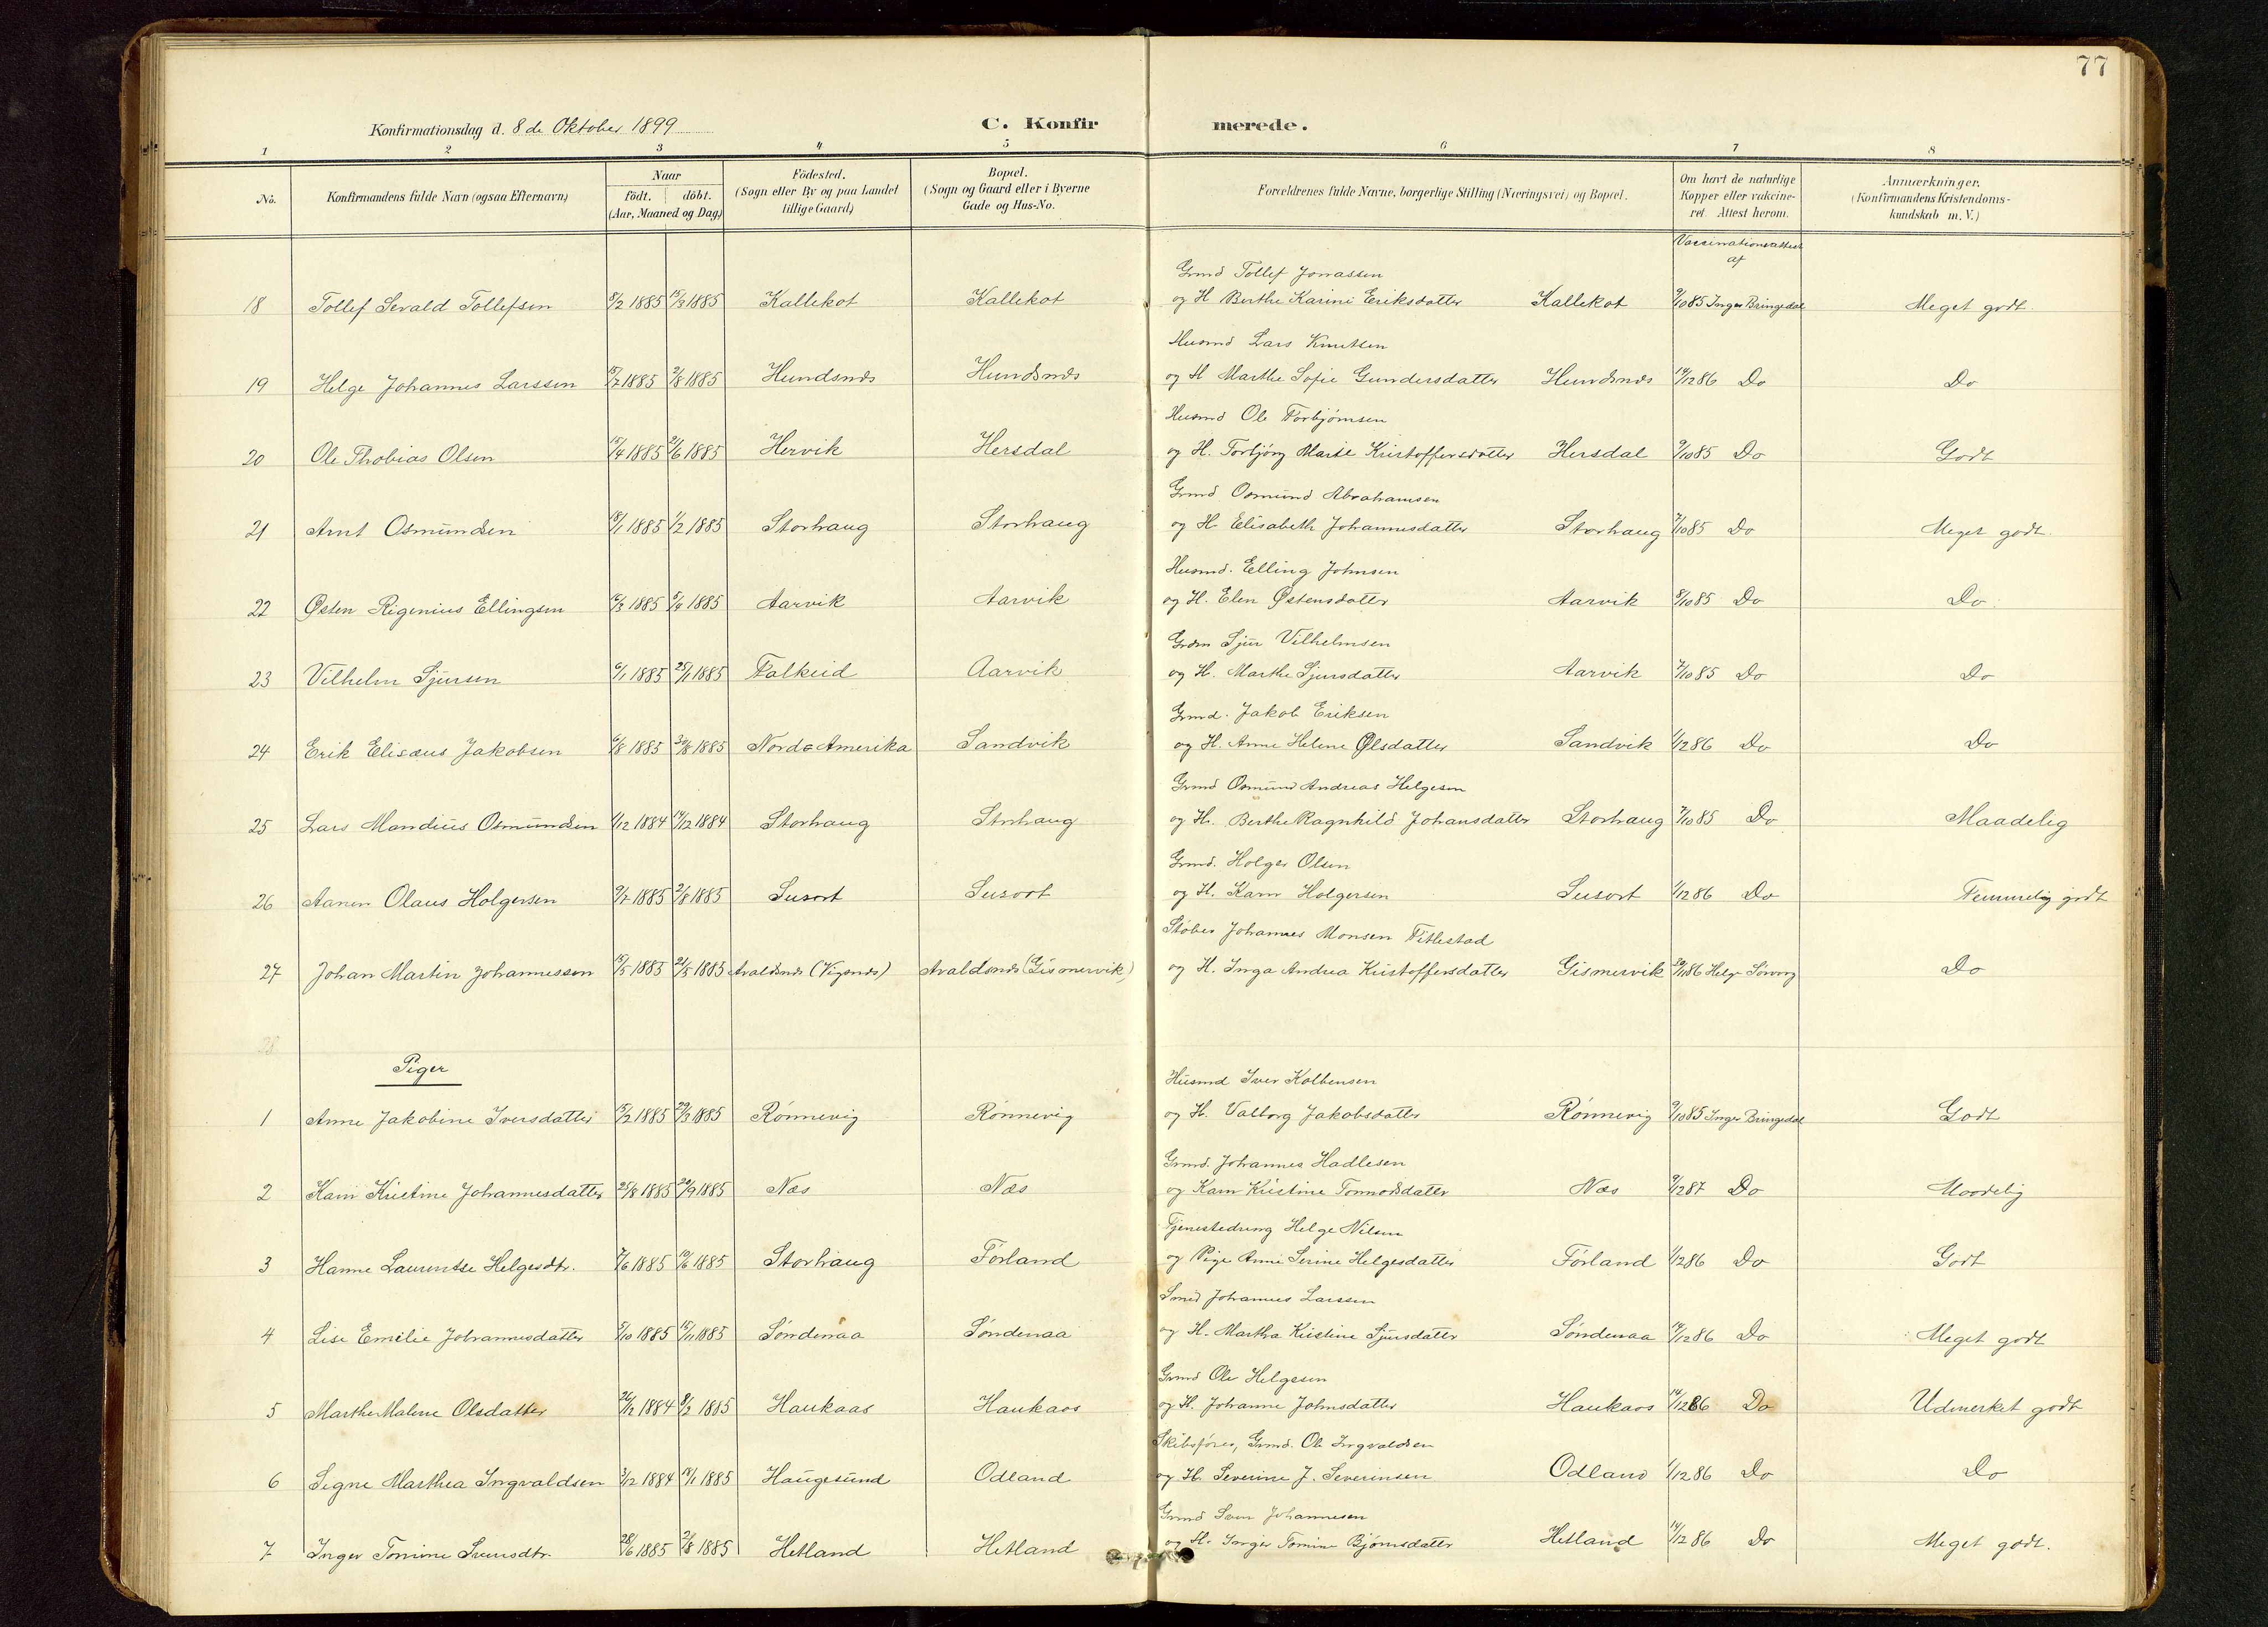 77
Konfirmationsdag d. 8de Oktober 1899
C. Konfirmerede.
1 2 3 4 5 6 7 8
No. Konfirmandens fulde Navn (ogsaa Efternavn) Naar födt. döbt. (Aar, Maaned og Dag) Födested. (Sogn eller By og paa Landet tillige Gaard) Bopæl. (Sogn og Gaard eller i Byerne Gade og Hus-No. Forældrenes fulde Navne, borgerlige Stilling (Næringsvei) og Bopæl. Om havt de naturlige Kopper eller vakcineret. Attest herom. Anmærkninger. (Konfirmandens Kristendomskundskab m. V.)
Vaccinationsattest af
Grmd Tollef Jonassen
18 Tollef Sevald Tollefsen 8/2 1885 15/3 1885 Kallekot Kallekot og H. Berthe Karine Eriksdatter Kallekot 9/10 85 Inger Bringedal Meget godt.
Husmd Lars Knutsen
19 Helge Johannes Larssen 15/7 1885 2/8 1885 Hundsnes Hundsnes og H Marthe Sofie Gundersdatter Hundsnes 14/12 86 Do Do
Husmd Ole Torbjørnsen
20 Ole Thobias Olsen 15/4 1885 21/6 1885 Hervik Hersdal og H. Torbjørg Marie Kristoffersdatter Hersdal 9/10 85 Do Godt
Grmd Osmund Abrahamsen
21 Arnt Osmundsen 18/1 1885 1/2 1885 Storhaug Storhaug og H. Elisabeth Johannesdatter Storhaug 7/10 85 Do Meget godt.
Husmd. Elling Johnsen
22 Østen Rigenius Ellingsen 16/3 1885 5/4 1885 Aarvik Aarvik og H. Elen Østensdatter Aarvik 8/10 85 Do Do
Grdm Sjur Vilhelmsen
23 Vilhelm Sjursen 6/1 1885 25/1 1885 Falkeid Aarvik og H. Marthe Sjursdatter Aarvik 7/10 85 Do Do
Grmd. Jakob Eriksen
24 Erik Elisæus Jakobsen 6/8 1885 30/8 1885 Nord Amerika Sandvik og H. Anne Helene Olsdatter Sandvik 1/12 86 Do Do
Grmd Osmund Andreas Helgesen
25 Lars Mandius Osmundsen 1/12 1884 14/12 1884 Storhaug Storhaug og H. Berthe Ragnhild Johansdatter Storhaug 7/10 85 Do Maadelig
Grmd. Holger Olsen
26 Aanen Olaus Holgersen 9/7 1885 2/8 1885 Susort Susort og H. Karen Holgersen Susort 1/12 86 Do Temmelig godt
Støber Johannes Monsen Titlestad
27 Johan Martin Johannessen 15/5 1885 21/5 1885 Avaldsnes (Vigsnes) Avaldsnes (Gismervik) og H. Inga Andrea Kristoffersdatter Gismervik 30/11 86 Helge Do
28
Piger
Husmd Iver Kolbensen
1 Anne Jakobine Iversdatter 15/2 1885 29/3 1885 Rønnevig Rønnevig og H. Valborg Jakobsdatter Rønnevig 9/10 85 Inger Bringedal Godt
Grmd. Johannes Hadlesen
2 Karen Kristine Johannesdatter 25/8 1885 20/9 1885 Næs Næs og Karen Kristine Tormodsdatter Næs 9/12 87 Do Maadelig
Tjenestedreng Helge Nilsen
3 Hanne Laurentse Helgesdtr. 7/6 1885 10/6 1885 Storhaug Førland og Pige Anne Serine Helgesdatter Førland 1/12 86 Do Godt
Smed Johannes Larssen
4 Lise Emelie Johannesdatter 5/10 1885 15/11 1885 Søndenaa Søndenaa og H. Martha Kristine Sjursdatter Søndenaa 14/12 86 Do Meget godt
Grmd Ole Helgesen
5 Marthe Malene Olsdatter 26/12 1884 8/2 1885 Haukaas Haukaas og H. Johanne Johnsdatter Haukaas 14/12 86 Do Udmerket godt
Skibsfører, Grmd. Ole Ingvaldsen
6 Signe Marthea Ingvaldsen 3/12 1884 18/1 1885 Haugesund Odland og H. Severine J. Severinsen Odland 1/12 86 Do Do
Grmd Sven Johannesen
7 Inger Tomine Svensdtr. 28/6 1885 2/8 1885 Hetland Hetland og H. Inger Tomine Bjørnsdatter Hetland 14/12 86 Do Meget godt.